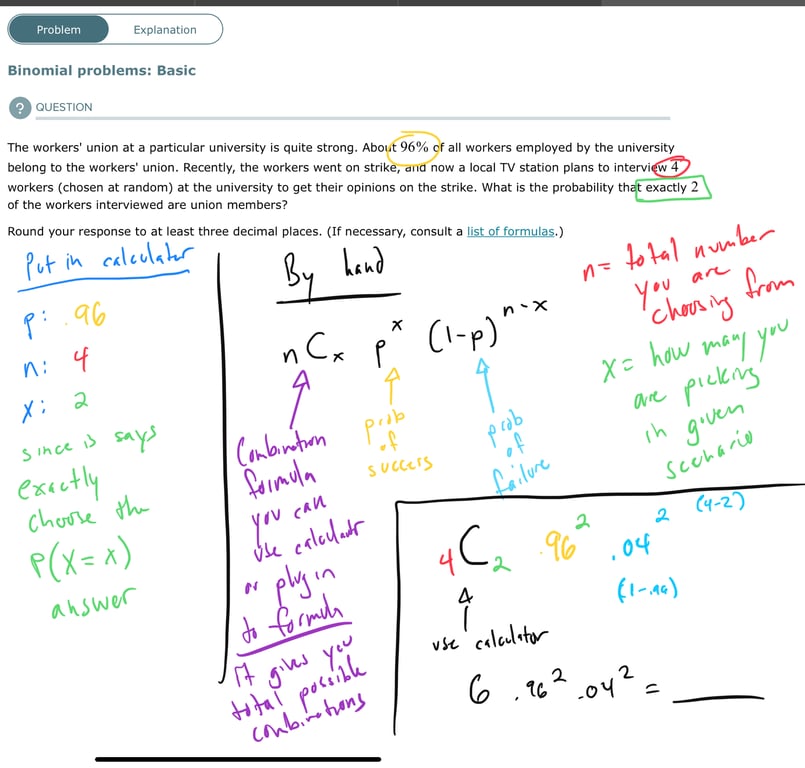 Problem
Explanation
Binomial problems: Basic
? QUESTION
The workers' union at a particular university is quite strong. About 96% of all workers employed by the university
belong to the workers' union. Recently, the workers went on strike, and now a local TV station plans to interview 4
workers (chosen at random) at the university to get their opinions on the strike. What is the probability that exactly 2
of the workers interviewed are union members?
Round your response to at least three decimal places. (If necessary, consult a list of formulas.)
Put in calculator
p: .96
n: 4
x: 2
since is says
exactly
choose the
P(X=x)
answer
By hand
nCx p^x (1-p)^n-x
Combination
formula
you can
use calculator
or plug in
to formula
It gives you
total possible
combinations
prob
of
success
prob
of
failure
n= total number
you are
choosing from
x= how many you
are picking
in given
scenario
4C2 .96^2 .04^2 (4-2)
(1-.96)
use calculator
6 .96^2 .04^2 = ____